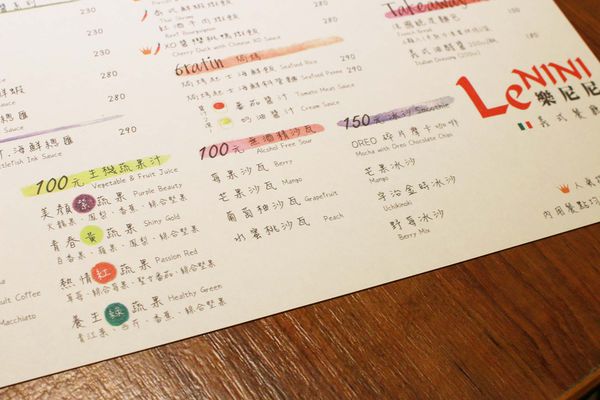 230
230
280
Sauce
290
Cuttlefish Ink Sauce
uit Coffee
Macchiato
The Shrimp
紅酒牛肉燉飯
Beef Bourguignon
KO醬櫻桃鴨燉飯
Cherry Duck with Chinese XO Sauce
230
290
280
Gratin 焗烤
焗烤起士海鮮飯 Seafood Rice 290
Seafood Penne
290
番茄醬汁 Tomato Meat Sauce
奶油醬汁 Cream Sauce
Takeaway
180
義式油醋醬 200cc/瓶
Italian Dressing (200cc)
150
LeNINI
樂尼尼
義式餐廳
100元 主機蔬果汁
Vegetable & Fruit Juice
美顏紫蔬果 Purple Beauty
火龍果、鳳梨、香蕉、綜合堅果
青春黃蔬果 Shiny Gold
百香果、蘋果、鳳梨、綜合堅果
熱情紅蔬果 Passion Red
草莓、綜合莓果、聖女番茄、綜合堅果
養生綠蔬果 Healthy Green
青江菜、西芹、香蕉、綜合堅果
100元 無酒精沙瓦
Alcohol Free Sour
莓果沙瓦 Berry
芒果沙瓦 Mango
葡萄柚沙瓦 Grapefruit
水蜜桃沙瓦 Peach
150元 冰沙 Smoothie
OREO 碎片摩卡咖啡
Mocha with Oreo Chocolate Chips
芒果冰沙
Mango
宇治金時冰沙
Uchikinoki
野莓冰沙
Berry Mix
人氣
內用餐點均